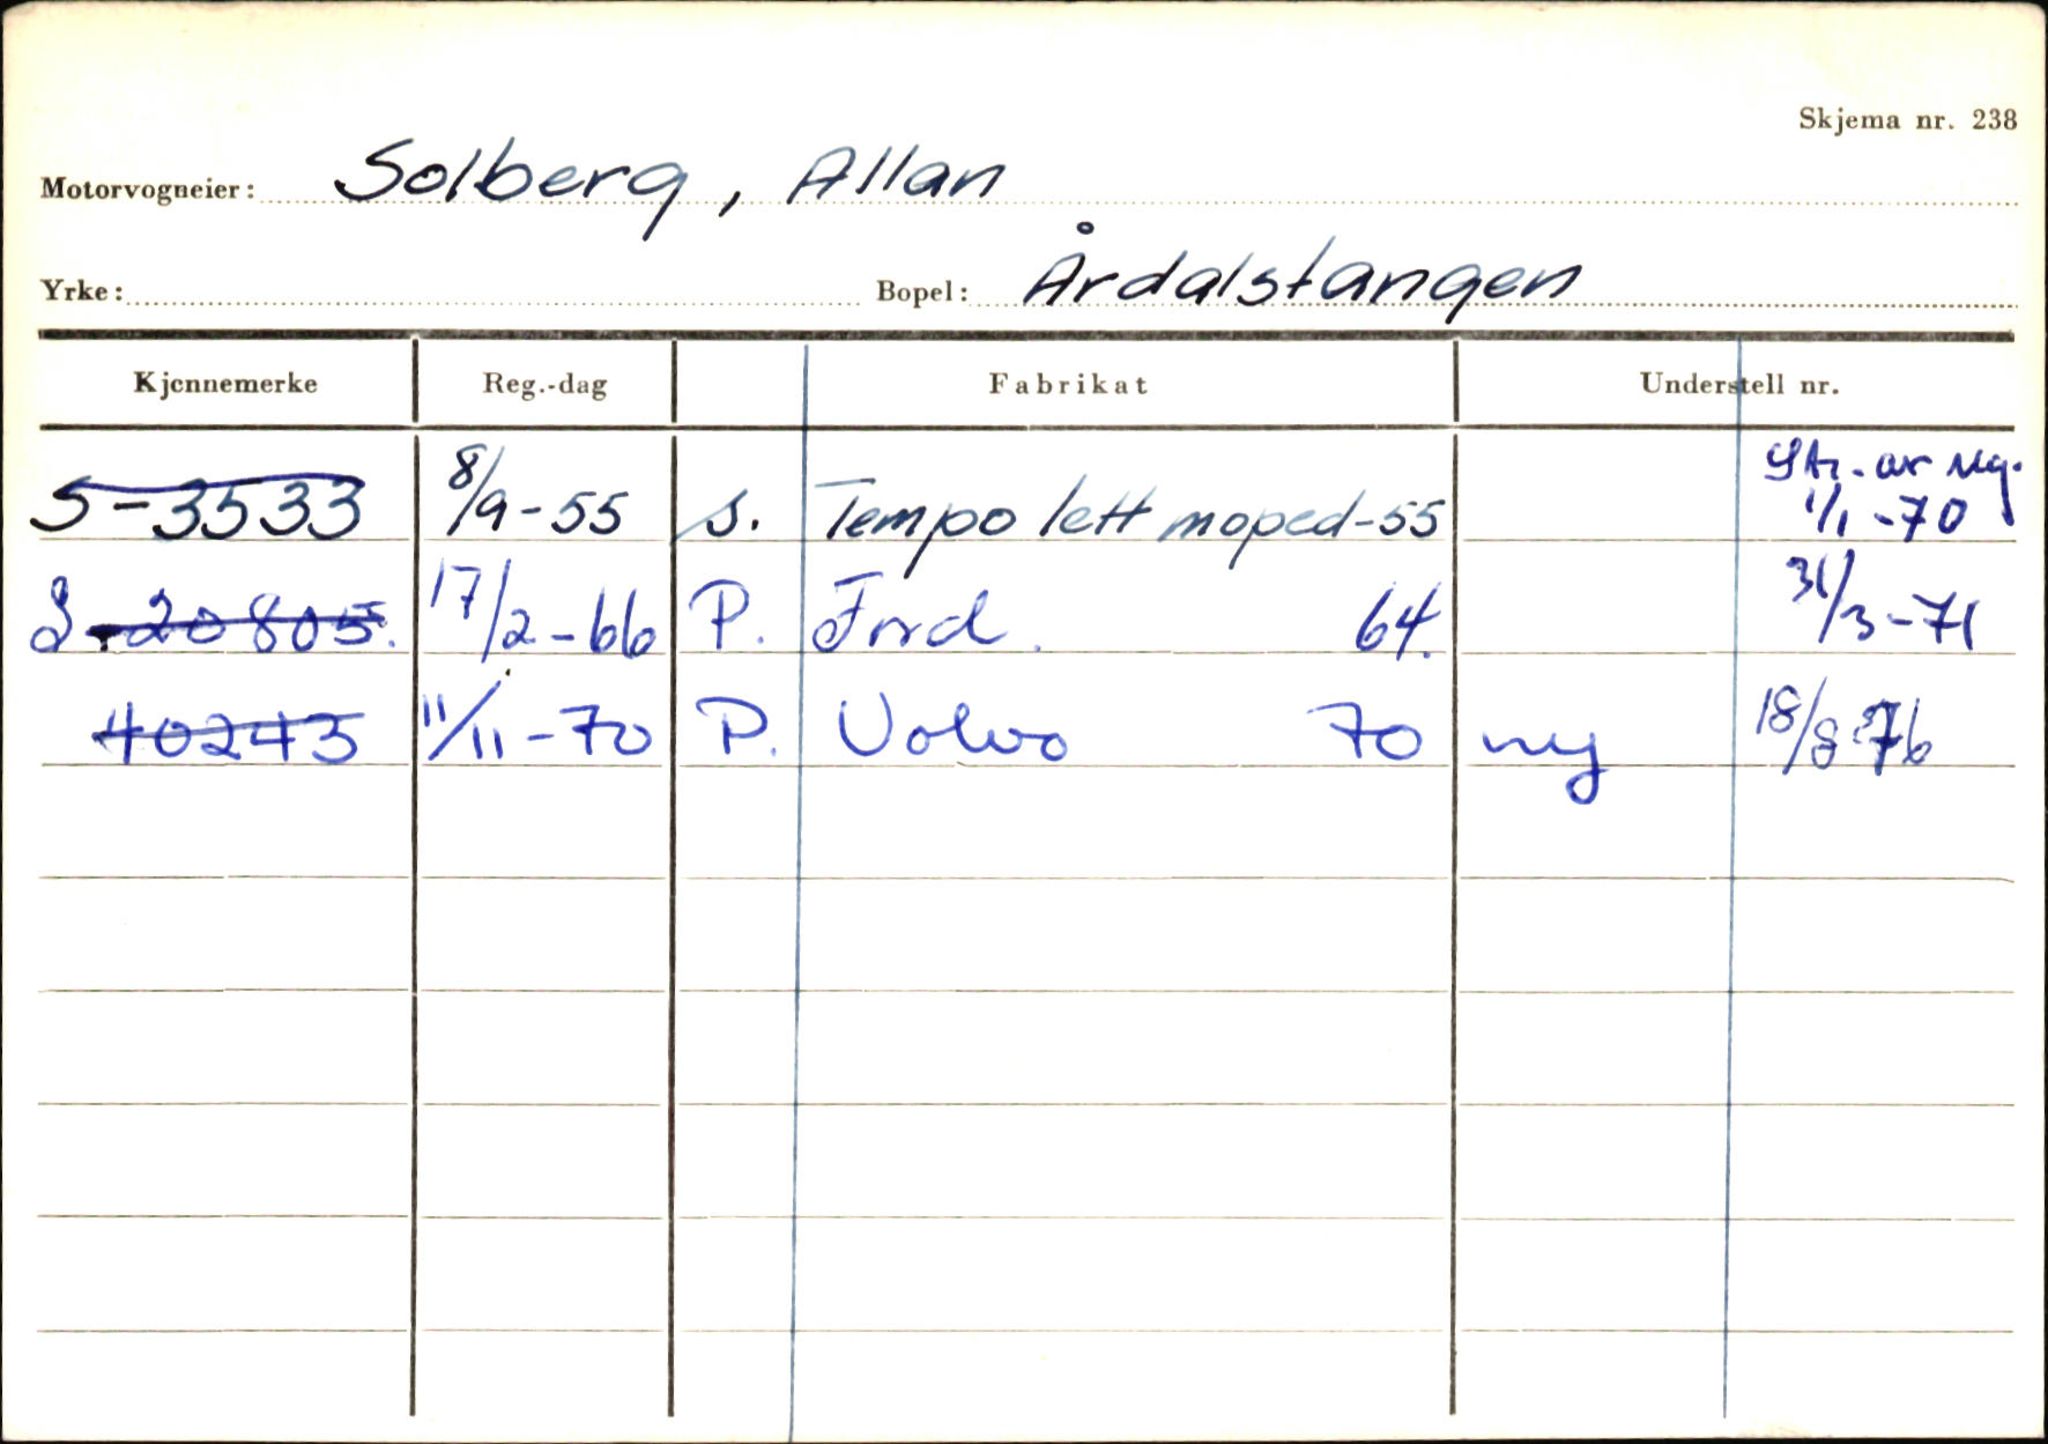 Skjema nr. 238
Motorvogneier: Solberg, Allan
Yrke: Bopel: Årdalstangen
Kjennemerke Reg.-dag Fabrikat Understell nr.
Str. av reg.
S-3533 8/9-55 s. Tempo lett moped-55 1/1-70
S-20805. 17/2-66 P. Ford. 64. 31/3-71
40243 11/11-70 P. Volvo 70 ny 18/8-76